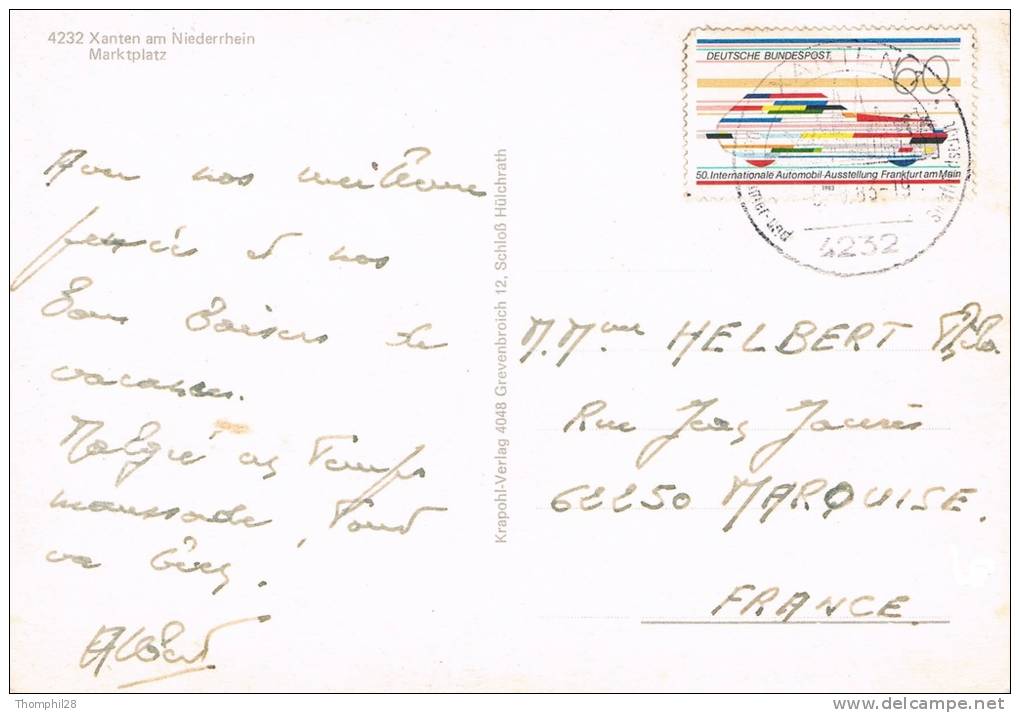 4232 Xanten am Niederrhein
Marktplatz
DEUTSCHE BUNDESPOST
60
50. Internationale Automobil-Ausstellung Frankfurt am Main
1983
XANTEN
4232
Avec nos meilleures
pensées et nos
bons baisers de
vacances.
Malgré un temps
maussade, tout
va bien.
Albert
Krapohl-Verlag 4048 Grevenbroich 12, Schloß Hülchrath
M. Mme HELBERT
Rue Jean Jaurès
62250 MARQUISE.
FRANCE.
Thomphil28
delcampe.net